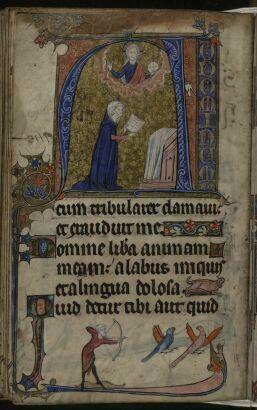 AD
DOMINUM
cum tribularer clamaui:
et exaudiuit me.
Domine liba animam
meam: a labiis iniquis
et a lingua dolosa.
Quid detur tibi aut quid